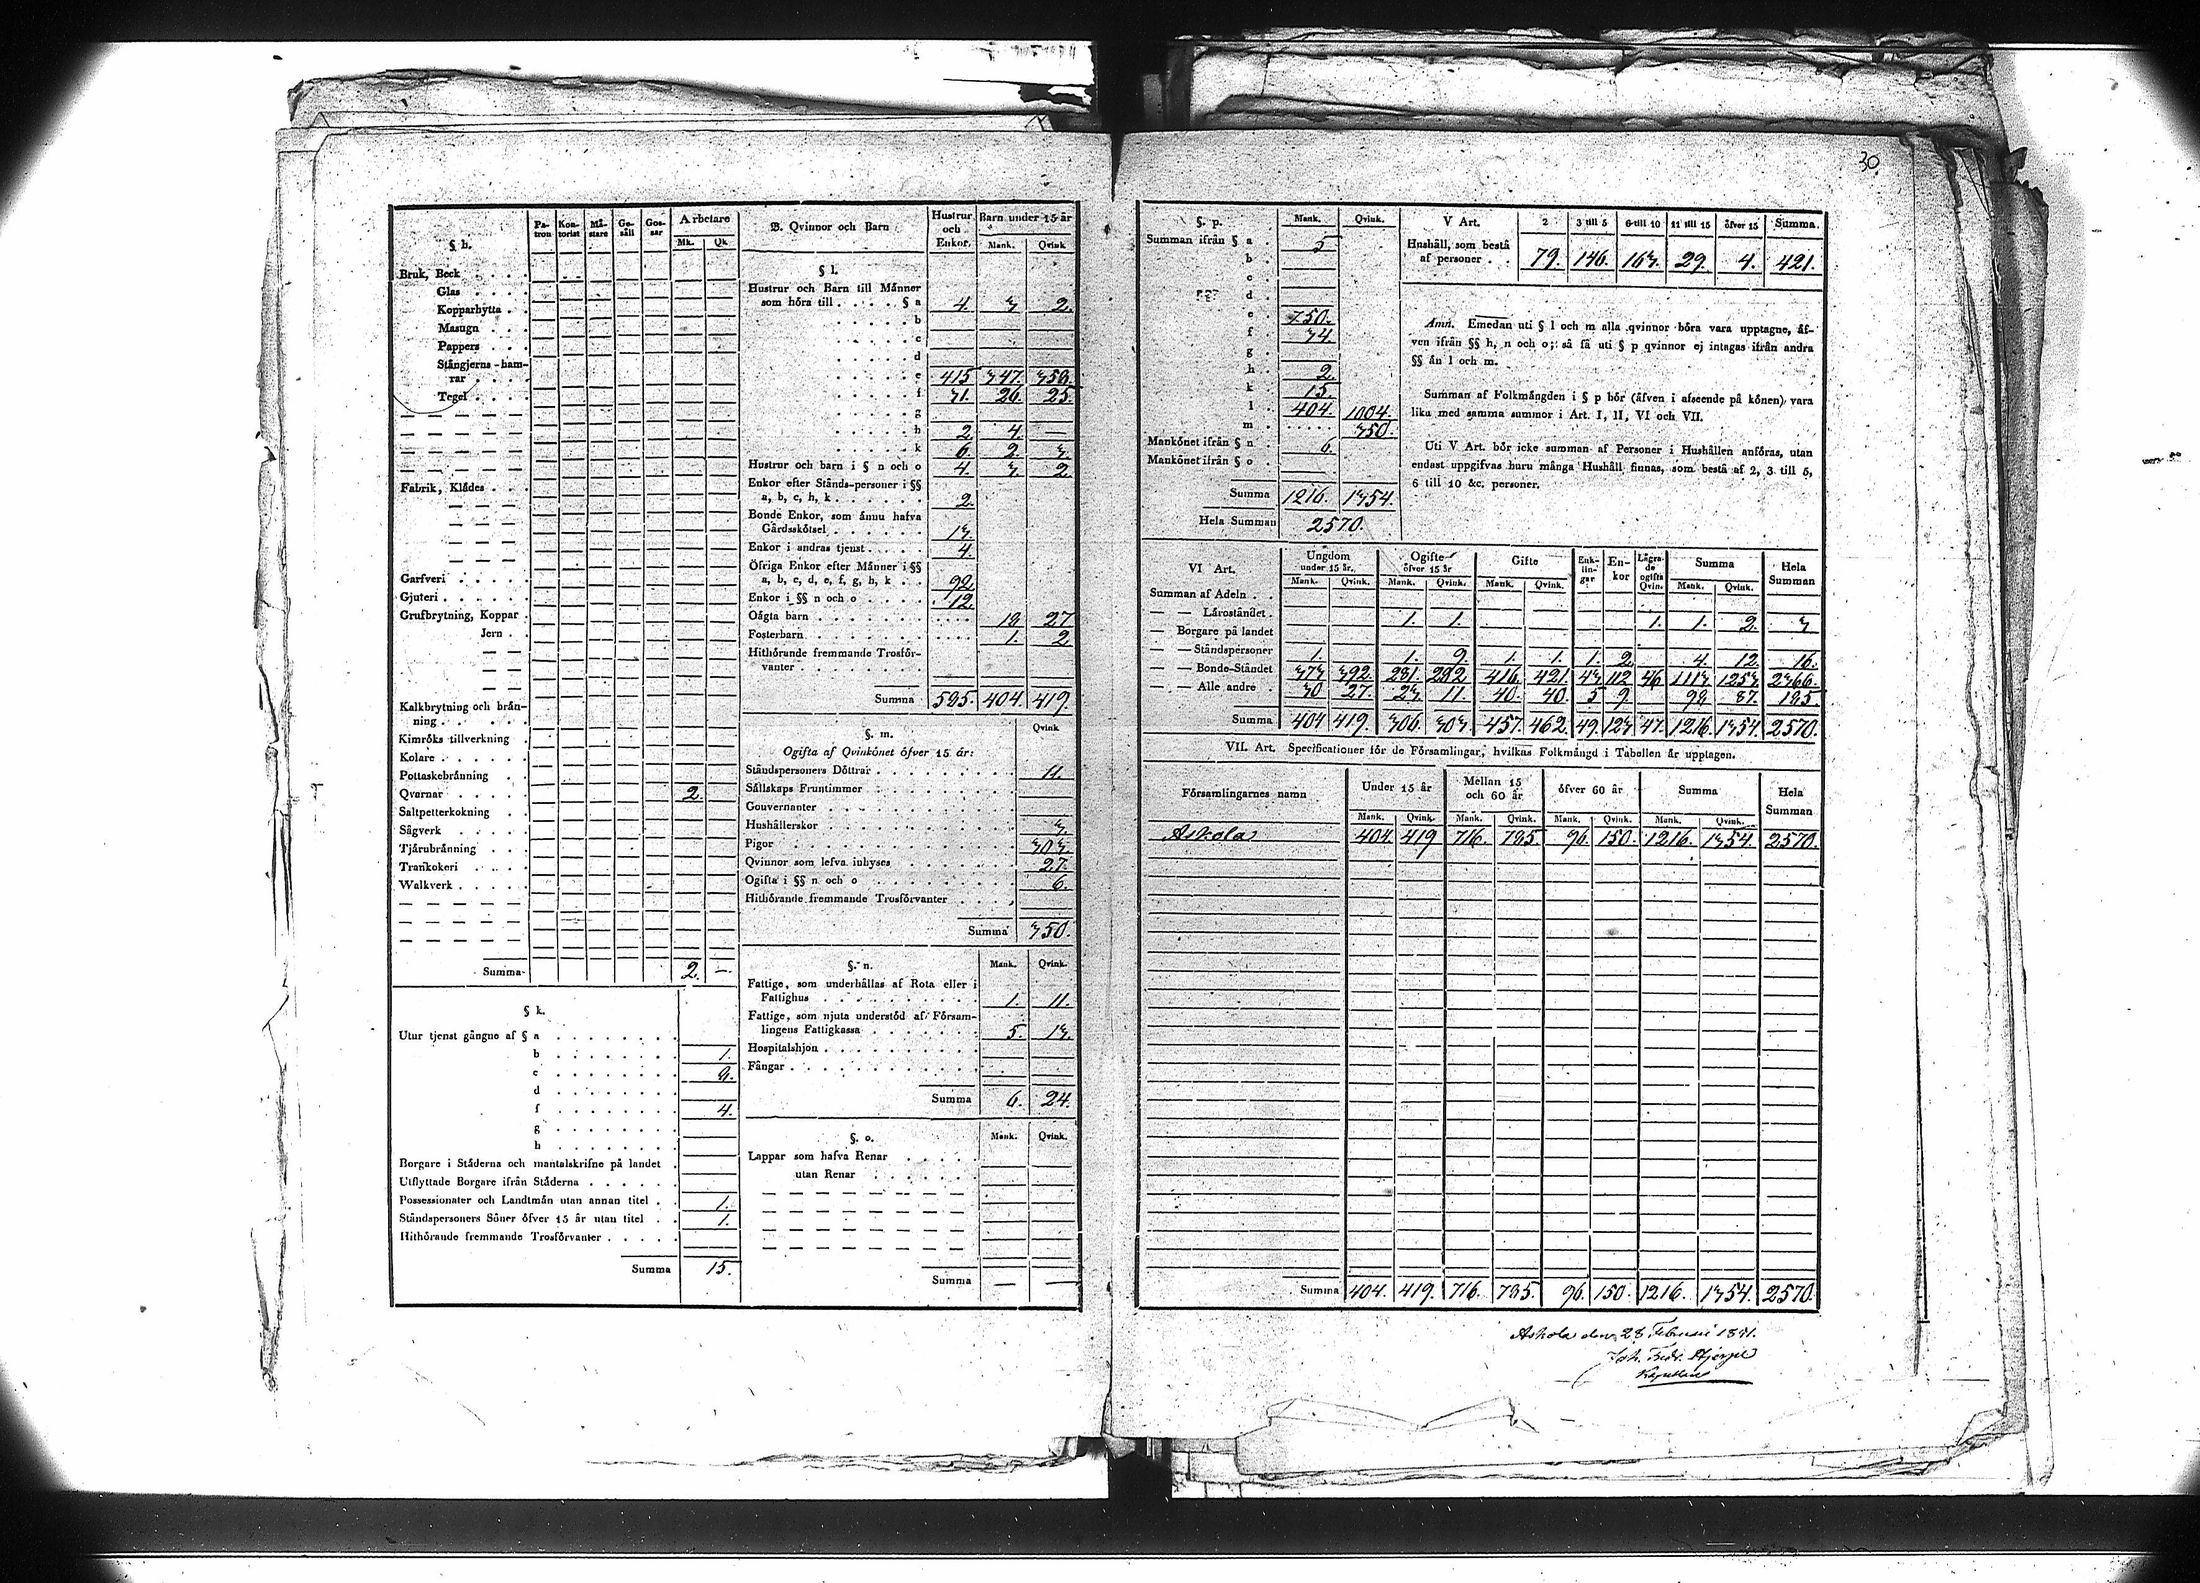 30.
§ h. Pa-tron Kon-torist Mä-stare Ge-säll Gos-sar Arbetare Mk. Qk.
Bruk, Beck
Glas
Kopparhytta
Masugn
Pappers
Stångjerns-ham-
rar
Tegel
Fabrik, Klädes
Garfveri
Gjuteri
Grufbrytning, Koppar
Jern
Kalkbrytning och brän-
ning
Kimröks tillverkning
Kolare
Pottaskebränning
Qvarnar 2.
Saltpetterkokning
Sågverk
Tjärubränning
Trankokeri
Walkverk
Summa 2. —
§ k.
Utur tjenst gångne af § a
b 1.
c 8.
d
f 4.
g
h
Borgare i Städerna och mantalskrifne på landet
Utflyttade Borgare ifrån Städerna
Possessionater och Landtmän utan annan titel 1.
Ståndspersoners Söner öfver 15 år utan titel 1.
Hithörande fremmande Trosförvanter
Summa 15.
B. Qvinnor och Barn Hustrur och Enkor. Barn under 15 år Mank. Qvink
§ l.
Hustrur och Barn till Männer
som höra till § a 4. 3 2.
b
c
d
e 415 347. 358.
f 31. 26. 25.
g
h 2. 4. —
k 6. 2. 3.
Hustrur och barn i § n och o 4. 3. 2.
Enkor efter Stånds-personer i §§
a, b, c, h, k 2.
Bonde Enkor, som ännu hafva
Gårdsskötsel 13.
Enkor i andras tjenst 4.
Öfriga Enkor efter Männer i §§
a, b, c, d, e, f, g, h, k 92.
Enkor i §§ n och o 12.
Oägta barn 18 27
Fosterbarn 1. 2
Hithörande fremmande Trosför-
vanter
Summa 585. 404. 419.
§. m. Qvink
Ogifta af Qvinkönet öfver 15 år:
Ståndspersoners Döttrar 11.
Sällskaps Fruntimmer
Gouvernanter
Hushållerskor 3.
Pigor 303.
Qvinnor som lefva inhyses 27.
Ogifta i §§ n och o 6.
Hithörande fremmande Trosförvanter
Summa 350.
§. n. Mank. Qvink.
Fattige, som underhållas af Rota eller i
Fattighus 1. 11.
Fattige, som njuta understöd af Försam-
lingens Fattigkassa 5. 13.
Hospitalshjon
Fångar
Summa 6. 24.
§. o. Mank. Qvink.
Lappar som hafva Renar
utan Renar
Summa — —
§. p. Mank. Qvink.
Summan ifrån § a 5
b
c
d
e 750.
f 34
g
h 2.
k 15.
l 404. 1004.
m 350.
Mankönet ifrån § n 6.
Mankönet ifrån § o
Summa 1216. 1354.
Hela Summan 2570.
V Art. 2 3 till 5 6 till 10 11 till 15 öfver 15 Summa.
Hushåll, som bestå
af personer 79. 146. 163. 29. 4. 421.
Anm. Emedan uti § l och m alla qvinnor böra vara upptagne, äf-
ven ifrån §§ h, n och o; så få uti § p qvinnor ej intagas ifrån andra
§§ än l och m.
Summan af Folkmängden i § p bör (äfven i afseende på könen) vara
lika med samma summor i Art. I, II, VI och VII.
Uti V Art. bör icke summan af Personer i Hushållen anföras, utan
endast uppgifvas huru många Hushåll finnas, som bestå af 2, 3 till 5,
6 till 10 &c. personer.
VI Art. Ungdom under 15 år. Ogifte öfver 15 år Gifte Enk-lin-gar En-kor Lägra-de ogifta Qvin. Summa Hela Summan
Mank. Qvink. Mank. Qvink. Mank. Qvink. Mank. Qvink.
Summan af Adeln
— — Läroståndet 1. 1. 1. 1. 2. 3
— Borgare på landet
— — Ståndspersoner 1. 1. 9. 1. 1. 1. 2. 4. 12. 16.
— — Bonde-Ståndet 373 392. 281. 282. 416. 421. 43. 112 46. 1113. 1253. 2366.
— — Alle andre 30 27. 23. 11. 40. 40. 5 9. 98. 87. 185.
Summa 404 419. 306. 303. 457. 462. 49. 123. 47. 1216. 1354. 2570.
VII. Art. Specificationer för de Församlingar, hvilkas Folkmängd i Tabellen är upptagen.
Församlingarnes namn Under 15 år Mellan 15 och 60 år öfver 60 år Summa Hela Summan
Mank. Qvink. Mank. Qvink. Mank. Qvink. Mank. Qvink.
Askola 404. 419 716. 785. 96. 150. 1216. 1354. 2570.
Summa 404. 419. 716. 785. 96. 150. 1216. 1354. 2570.
Askola den 28 Februarii 1831.
Joh. Fredr.